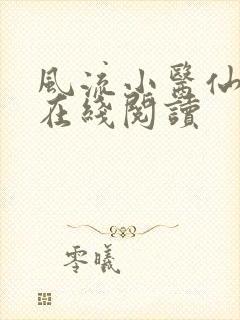 風流小醫仙
在綫閱讀
零曦